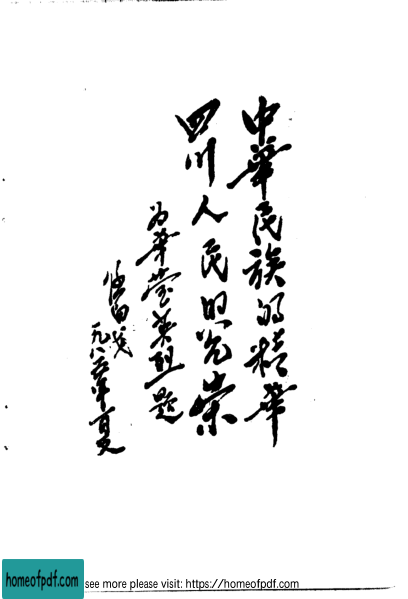 中華民族的精华
四川人民的光荣
为华蓥英烈题
一九八五年百夏
homeofpdf.com
see more please visit: https://homeofpdf.com